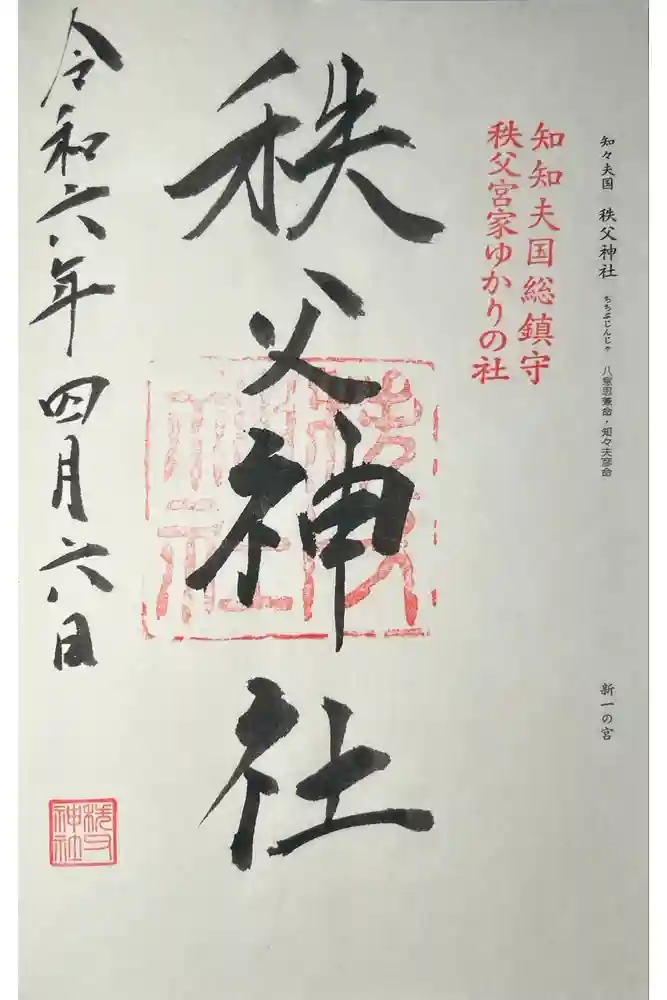 知々夫国 秩父神社 ちちぶじんじゃ 八意思兼命・知々夫彦命
新一の宮
知知夫国総鎮守
秩父宮家ゆかりの社
秩父神社
令和六年四月六日
秩父
神社
秩父
神社